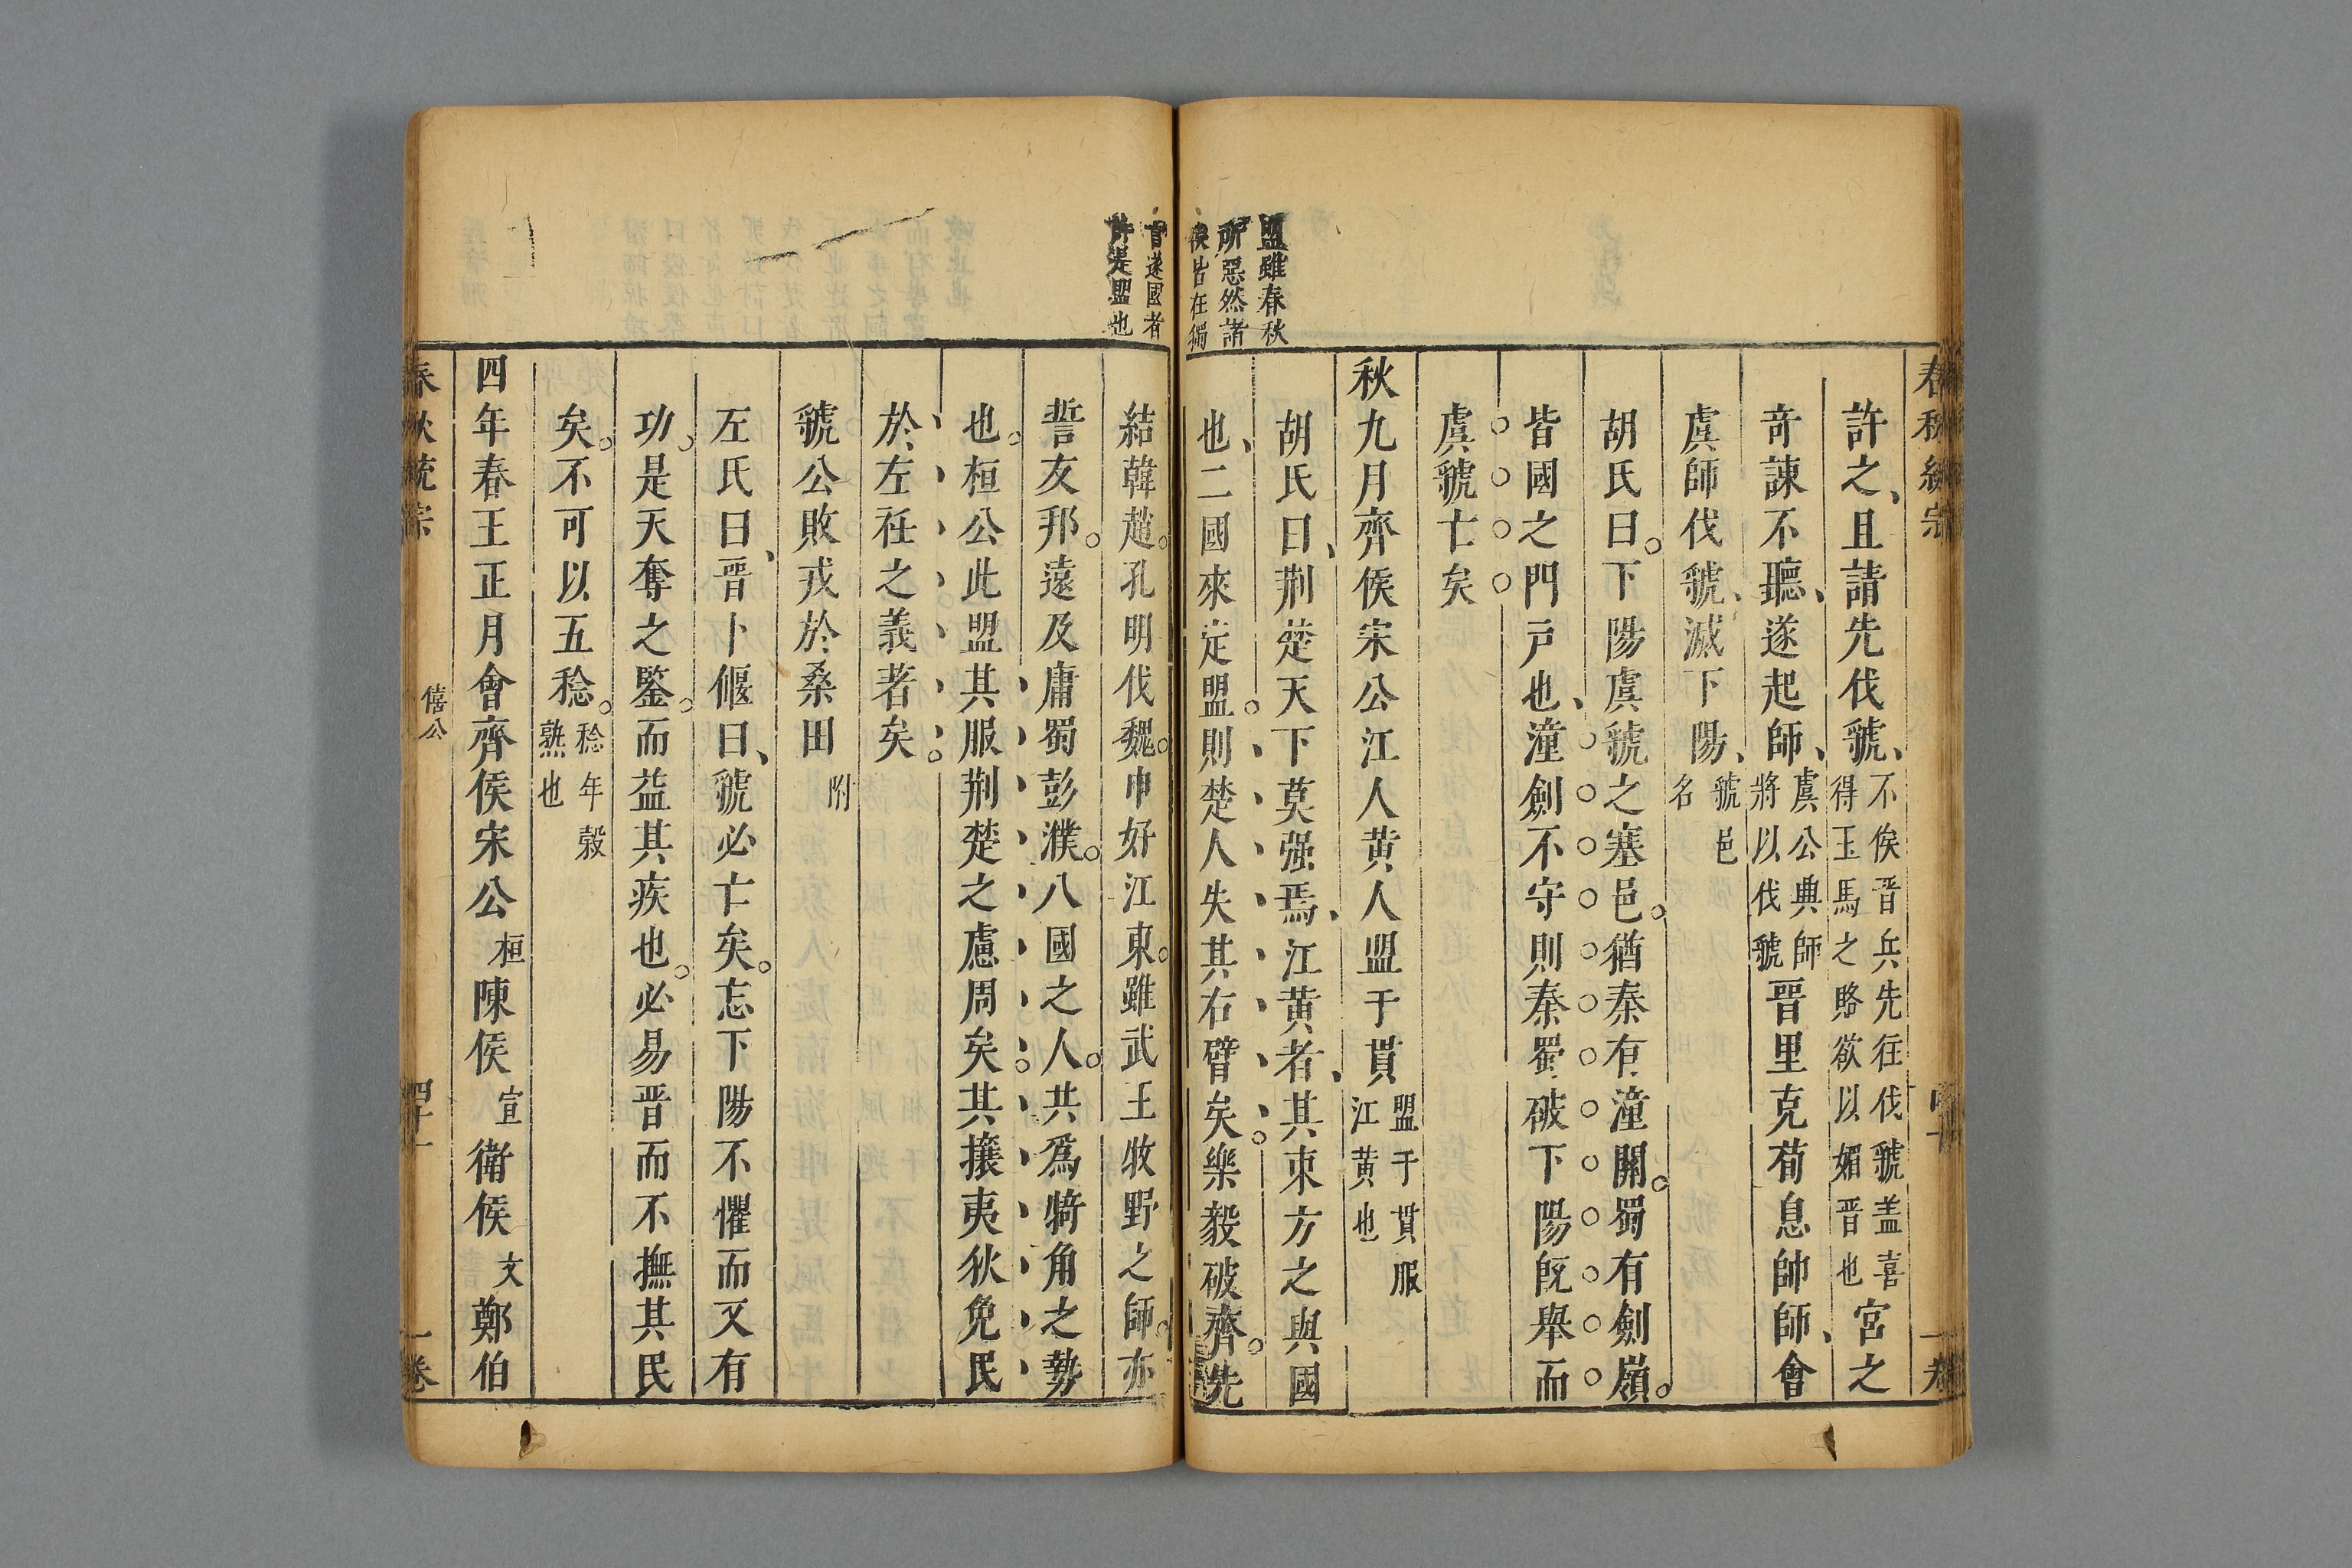 盟雖春秋
所惡然諸
侯皆在獨
許之且請先伐虢不俟晋兵先往伐虢盖喜得玉馬之賂欲以媚晋也宮之
竒諫不聽遂起師虞公典師將以伐虢晋里克荀息帥師會
虞師伐虢滅下陽虢邑名
胡氏曰下陽虞虢之塞邑猶秦有潼關蜀有劍嶺
皆國之門戶也潼劍不守則秦蜀破下陽旣舉而
虞虢亡矣
秋九月齊侯宋公江人黄人盟于貫盟于貫服江黄也
胡氏曰荆楚天下莫强焉江黄者其東方之與國
也二國來定盟則楚人失其右臂矣樂毅破齊先
遂國者
許是盟也
結韓趙孔明伐魏申好江東雖武王牧野之師亦
誓友邦遠及庸蜀彭濮八國之人共爲犄角之勢
也桓公此盟其服荆楚之慮周矣其攘夷狄免民
於左衽之義者矣
虢公敗戎於桑田附
左氏曰晋卜偃曰虢必亡矣忘下陽不懼而又有
功是天奪之鑒而益其疾也必易晋而不撫其民
矣不可以五稔稔年穀熟也
四年春王正月會齊侯宋公桓陳侯宣衛侯文鄭伯
春秋統宗
僖公
四十一
一卷